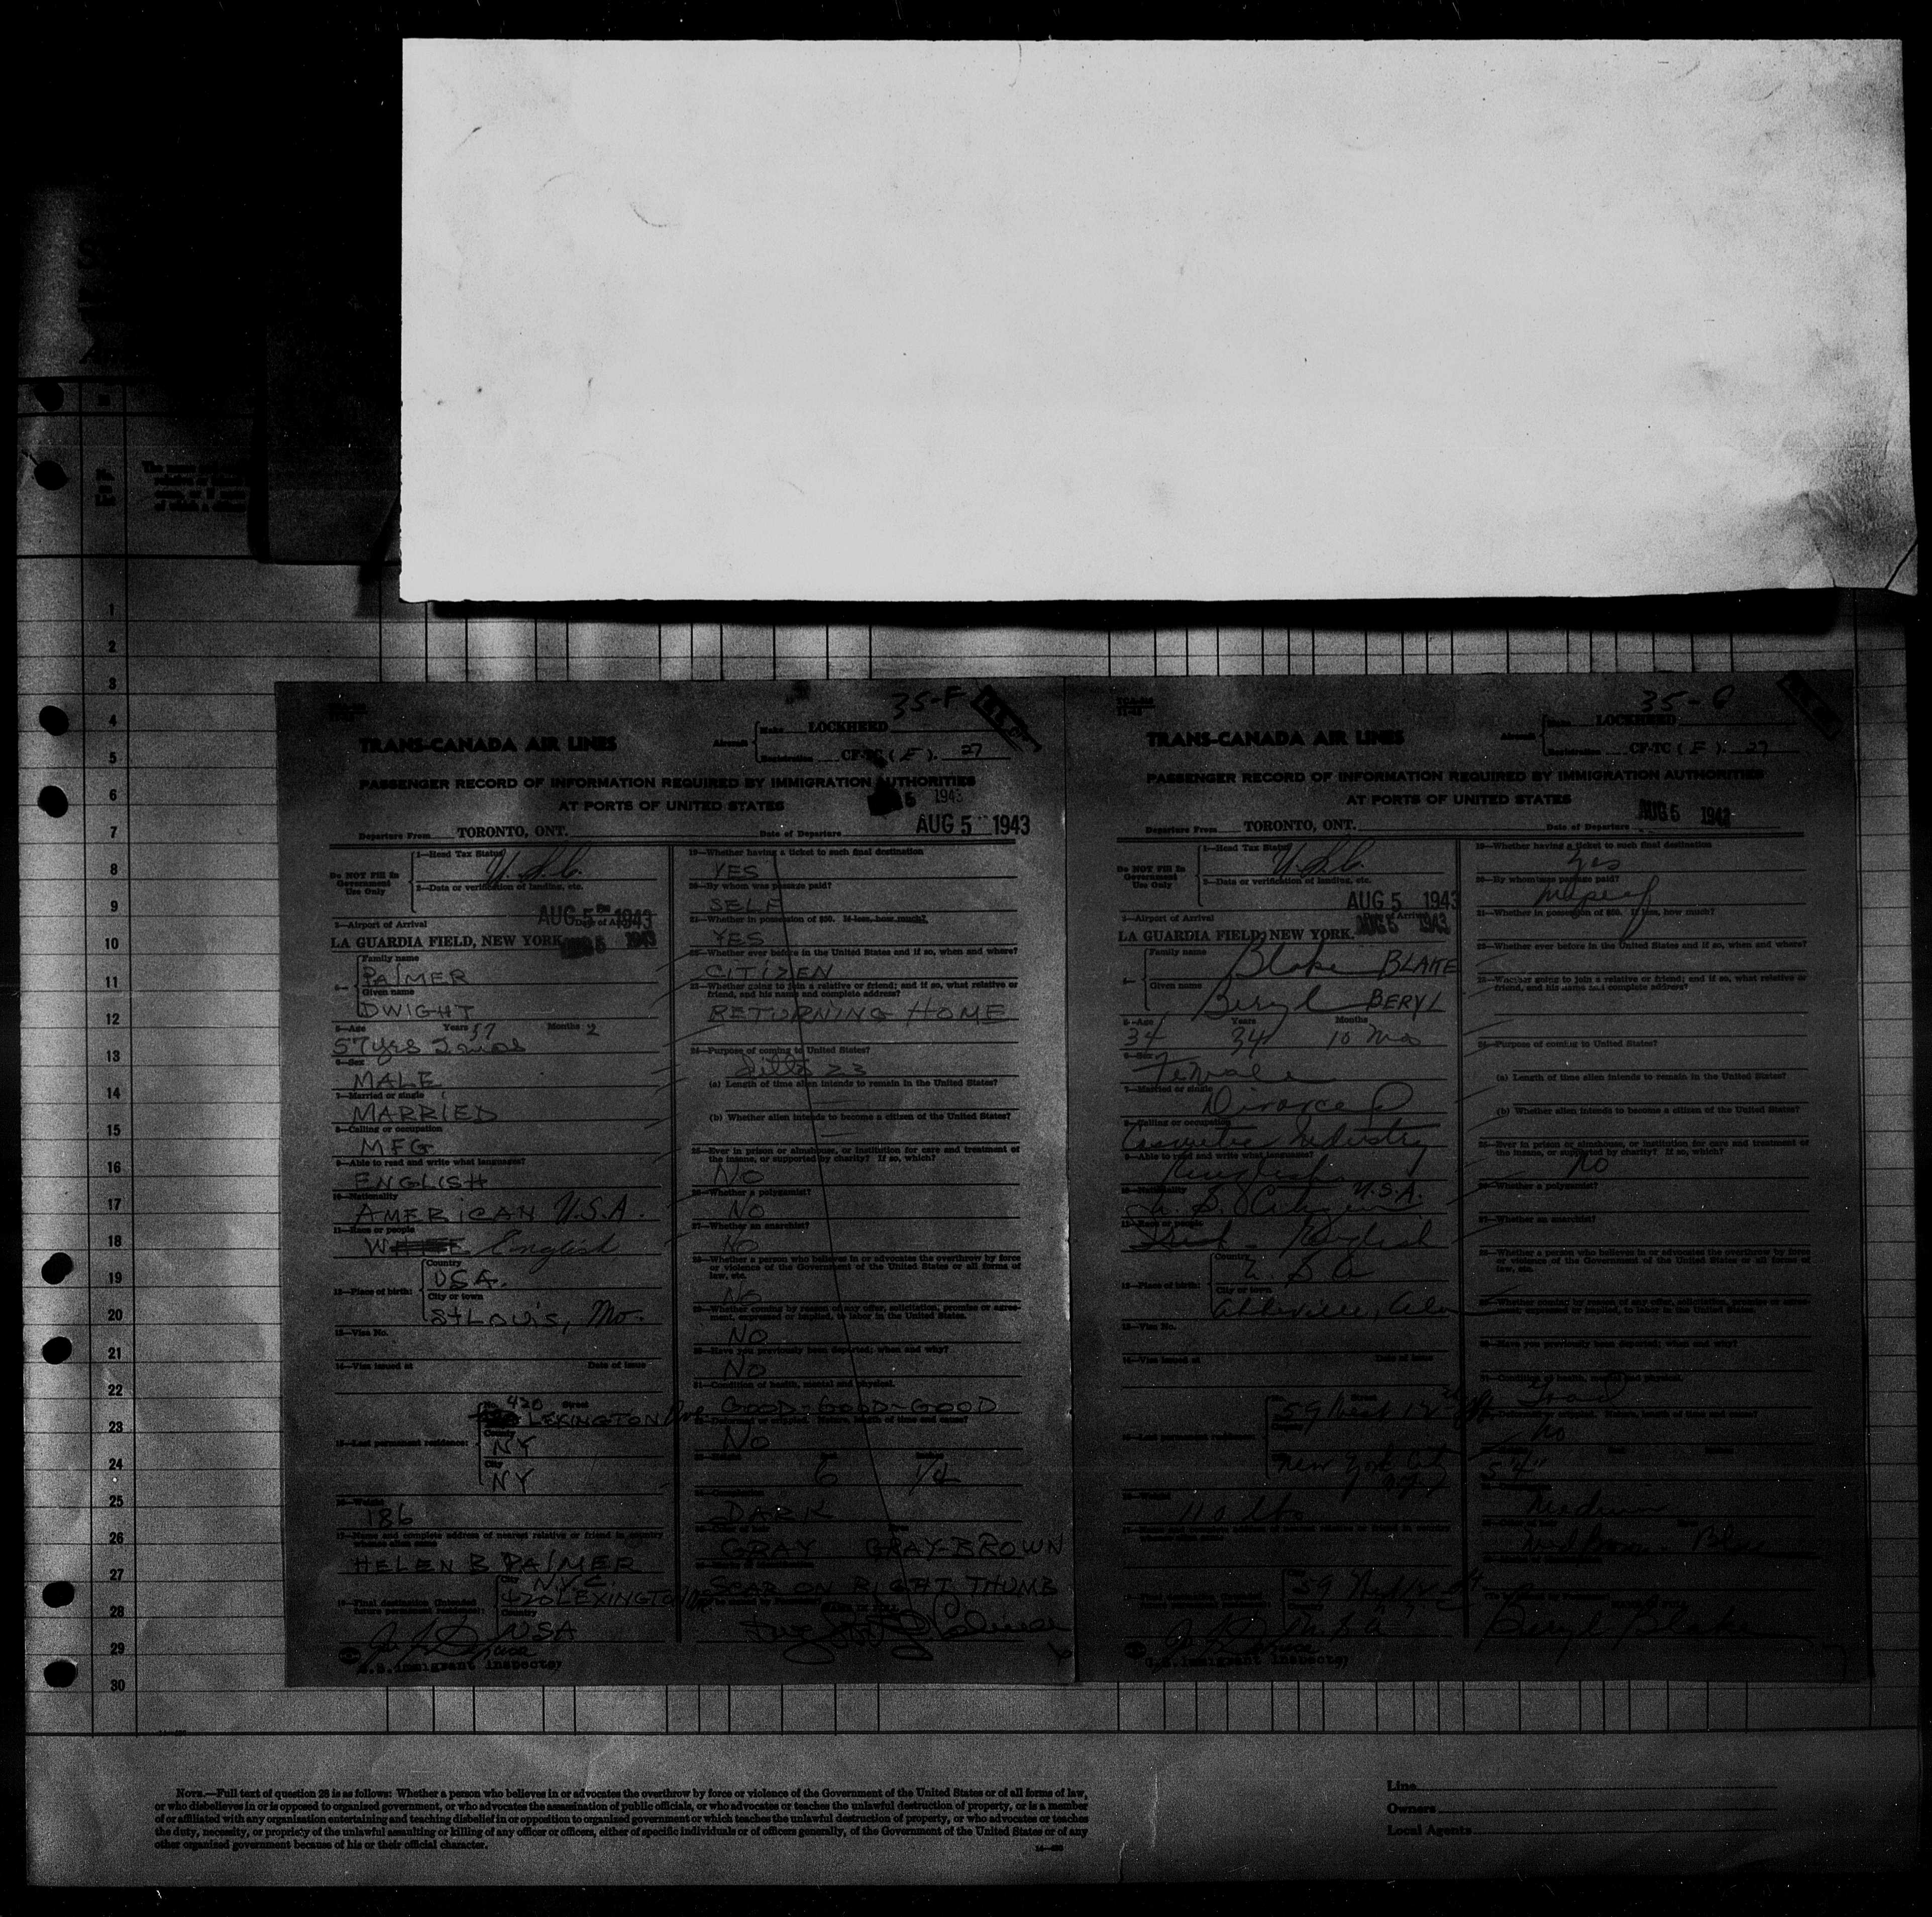 35-F
TRANS-CANADA AIR LINES
Aircraft
Make LOCKHEED
Registration CF-TC ( F ). 27
PASSENGER RECORD OF INFORMATION REQUIRED BY IMMIGRATION AUTHORITIES
AT PORTS OF UNITED STATES
5 1943
Departure From TORONTO, ONT. Date of Departure AUG 5 1943
Do NOT Fill In
Government
Use Only
1—Head Tax Status
U.S.C.
2—Data or verification of landing, etc.
3—Airport of Arrival AUG 5 1943
LA GUARDIA FIELD, NEW YORK. AUG 5 1943
Family name
PALMER
Given name
DWIGHT
5—Age Years 57 Months 2
57 yrs 2 mos
6—Sex
MALE
7—Married or single
MARRIED
8—Calling or occupation
MFG
9—Able to read and write what languages?
ENGLISH
10—Nationality
AMERICAN U.S.A.
11—Race or people
English
12—Place of birth:
Country
USA.
City or town
St Louis, Mo.
13—Visa No.
14—Visa issued at Date of issue
15—Last permanent residence:
420 Street
LEXINGTON Ave
County
NY
City
NY
16—Weight
186
17—Name and complete address of nearest relative or friend in country
whence alien came
HELEN B PALMER
18—Final destination (Intended
future permanent residence):
City N.Y.C.
420 LEXINGTON
Country
USA
U.S. Immigrant Inspector
19—Whether having a ticket to such final destination
YES
20—By whom was passage paid?
SELF
21—Whether in possession of $50. If less, how much?
YES
22—Whether ever before in the United States and if so, when and where?
CITIZEN
23—Whether going to join a relative or friend; and if so, what relative or
friend, and his name and complete address?
RETURNING HOME
24—Purpose of coming to United States?
(a) Length of time alien intends to remain in the United States?
(b) Whether alien intends to become a citizen of the United States?
25—Ever in prison or almshouse, or institution for care and treatment of
the insane, or supported by charity? If so, which?
NO
26—Whether a polygamist?
NO
27—Whether an anarchist?
NO
28—Whether a person who believes in or advocates the overthrow by force
or violence of the Government of the United States or all forms of
law, etc.
NO
29—Whether coming by reason of any offer, solicitation, promise or agree-
ment, expressed or implied, to labor in the United States.
NO
30—Have you previously been deported; when and why?
NO
31—Condition of health, mental and physical.
GOOD-GOOD-GOOD
32—Deformed or crippled. Nature, length of time and cause?
NO
6 1/2
DARK
GRAY GRAY-BROWN
SCAR ON RIGHT THUMB
35-G
TRANS-CANADA AIR LINES
Aircraft
Make LOCKHEED
Registration CF-TC ( F ). 27
PASSENGER RECORD OF INFORMATION REQUIRED BY IMMIGRATION AUTHORITIES
AT PORTS OF UNITED STATES
Departure From TORONTO, ONT. Date of Departure AUG 5 1943
Do NOT Fill In
Government
Use Only
1—Head Tax Status
U.S.C.
2—Data or verification of landing, etc.
AUG 5 1943
3—Airport of Arrival
LA GUARDIA FIELD, NEW YORK. AUG 5 1943
Family name
Blake BLAKE
Given name
Beryl BERYL
5—Age Years Months
34 34 10 Mos
6—Sex
Female
7—Married or single
Divorced
8—Calling or occupation
Cosmetic Industry
9—Able to read and write what languages?
English
10—Nationality
U.S. Citizen U.S.A.
11—Race or people
English
12—Place of birth:
Country
U S A
City or town
Abbeville, Ala
13—Visa No.
14—Visa issued at Date of issue
15—Last permanent residence:
Street
59 West 12
County
New York City
16—Weight
110 lbs
59 West 12
U.S. Immigrant Inspector
19—Whether having a ticket to such final destination
Yes
20—By whom was passage paid?
myself
21—Whether in possession of $50. If less, how much?
22—Whether ever before in the United States and if so, when and where?
23—Whether going to join a relative or friend; and if so, what relative or
friend, and his name and complete address?
24—Purpose of coming to United States?
(a) Length of time alien intends to remain in the United States?
(b) Whether alien intends to become a citizen of the United States?
25—Ever in prison or almshouse, or institution for care and treatment of
the insane, or supported by charity? If so, which?
No
26—Whether a polygamist?
27—Whether an anarchist?
28—Whether a person who believes in or advocates the overthrow by force
or violence of the Government of the United States or all forms of
law, etc.
29—Whether coming by reason of any offer, solicitation, promise or agree-
ment, expressed or implied, to labor in the United States.
30—Have you previously been deported; when and why?
31—Condition of health, mental and physical.
Good
32—Deformed or crippled. Nature, length of time and cause?
No
5'4"
Medium
Beryl Blake
1
2
3
4
5
6
7
8
9
10
11
12
13
14
15
16
17
18
19
20
21
22
23
24
25
26
27
28
29
30
NOTE.—Full text of question 28 is as follows: Whether a person who believes in or advocates the overthrow by force or violence of the Government of the United States or of all forms of law,
or who disbelieves in or is opposed to organized government, or who advocates the assassination of public officials, or who advocates or teaches the unlawful destruction of property, or is a member
of or affiliated with any organization entertaining and teaching disbelief in or opposition to organized government or which teaches the unlawful destruction of property, or who advocates or teaches
the duty, necessity, or propriety of the unlawful assaulting or killing of any officer or officers, either of specific individuals or of officers generally, of the Government of the United States or of any
other organized government because of his or their official character.
Line
Owners
Local Agents